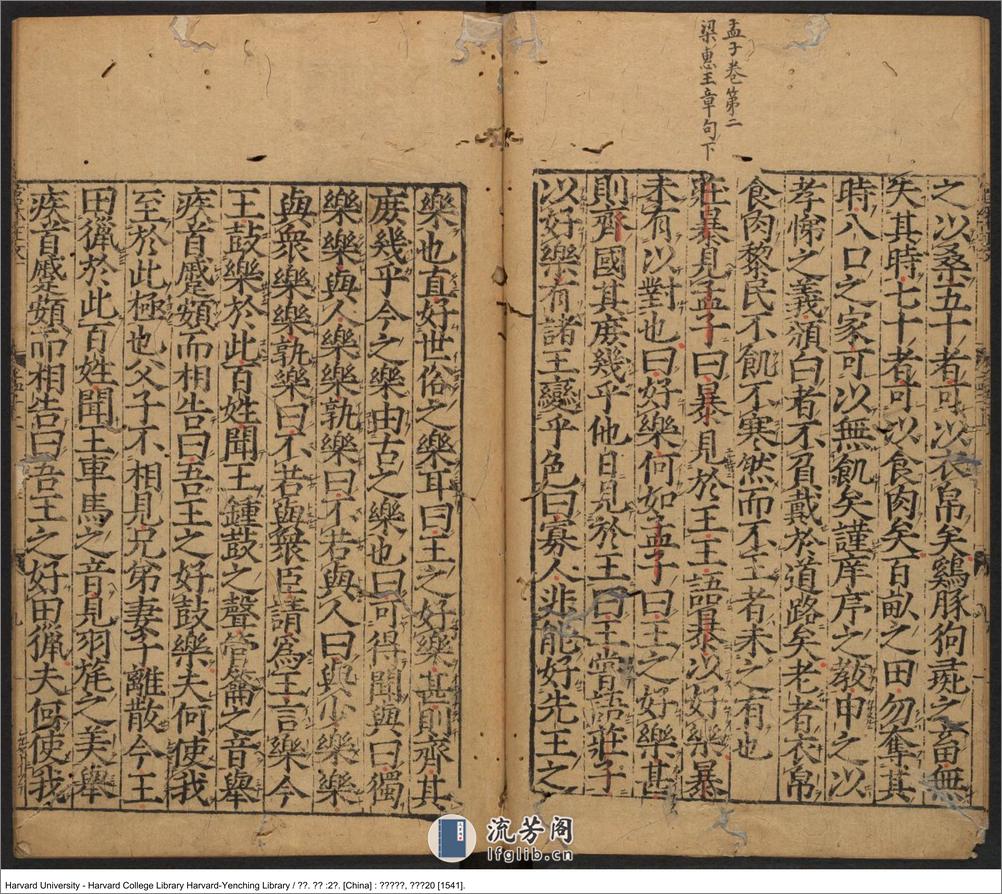 孟子卷第二
梁惠王章句下
之以桑五十者可以衣帛矣鷄豚狗彘之畜無
失其時七十者可以食肉矣百畝之田勿奪其
時八口之家可以無飢矣謹庠序之敎申之以
孝悌之義頒白者不負戴於道路矣老者衣帛
食肉黎民不飢不寒然而不王者未之有也
莊暴見孟子曰暴見於王王語暴以好樂暴
未有以對也曰好樂何如孟子曰王之好樂甚
則齊國其庶幾乎他日見於王曰王嘗語莊子
以好樂有諸王變乎色曰寡人非能好先王之
樂也直好世俗之樂耳曰王之好樂甚則齊其
庶幾乎今之樂由古之樂也曰可得聞與曰獨
樂樂與人樂樂孰樂曰不若與人曰與少樂樂
與衆樂樂孰樂曰不若與衆臣請爲王言樂今
王鼓樂於此百姓聞王鍾鼓之聲管籥之音舉
疾首蹙頞而相告曰吾王之好鼓樂夫何使我
至於此極也父子不相見兄弟妻子離散今王
田獵於此百姓聞王車馬之音見羽旄之美舉
疾首蹙頞而相告曰吾王之好田獵夫何使我
流芳阁
lfglib.cn
Harvard University - Harvard College Library Harvard-Yenching Library / ??. ?? :2?. [China] : ?????, ???20 [1541].